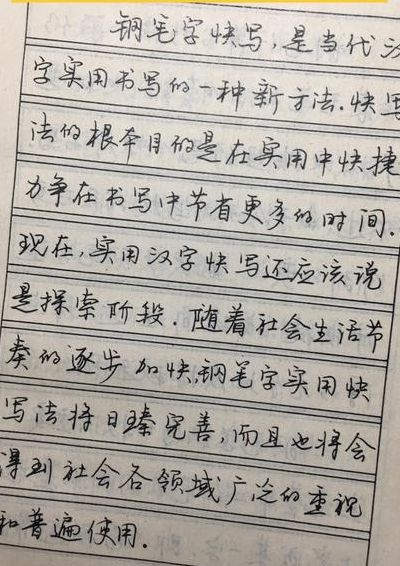 钢笔字快写,是当代汉
字实用书写的一种新方法.快写
法的根本目的是在实用中快捷
力争在书写中节省更多的时间.
现在,实用汉字快写还应该说
是探索阶段.随着社会生活节
奏的逐步加快,钢笔字实用快
写法将日臻完善,而且也将会
得到社会各领域广泛的重视
和普遍使用.